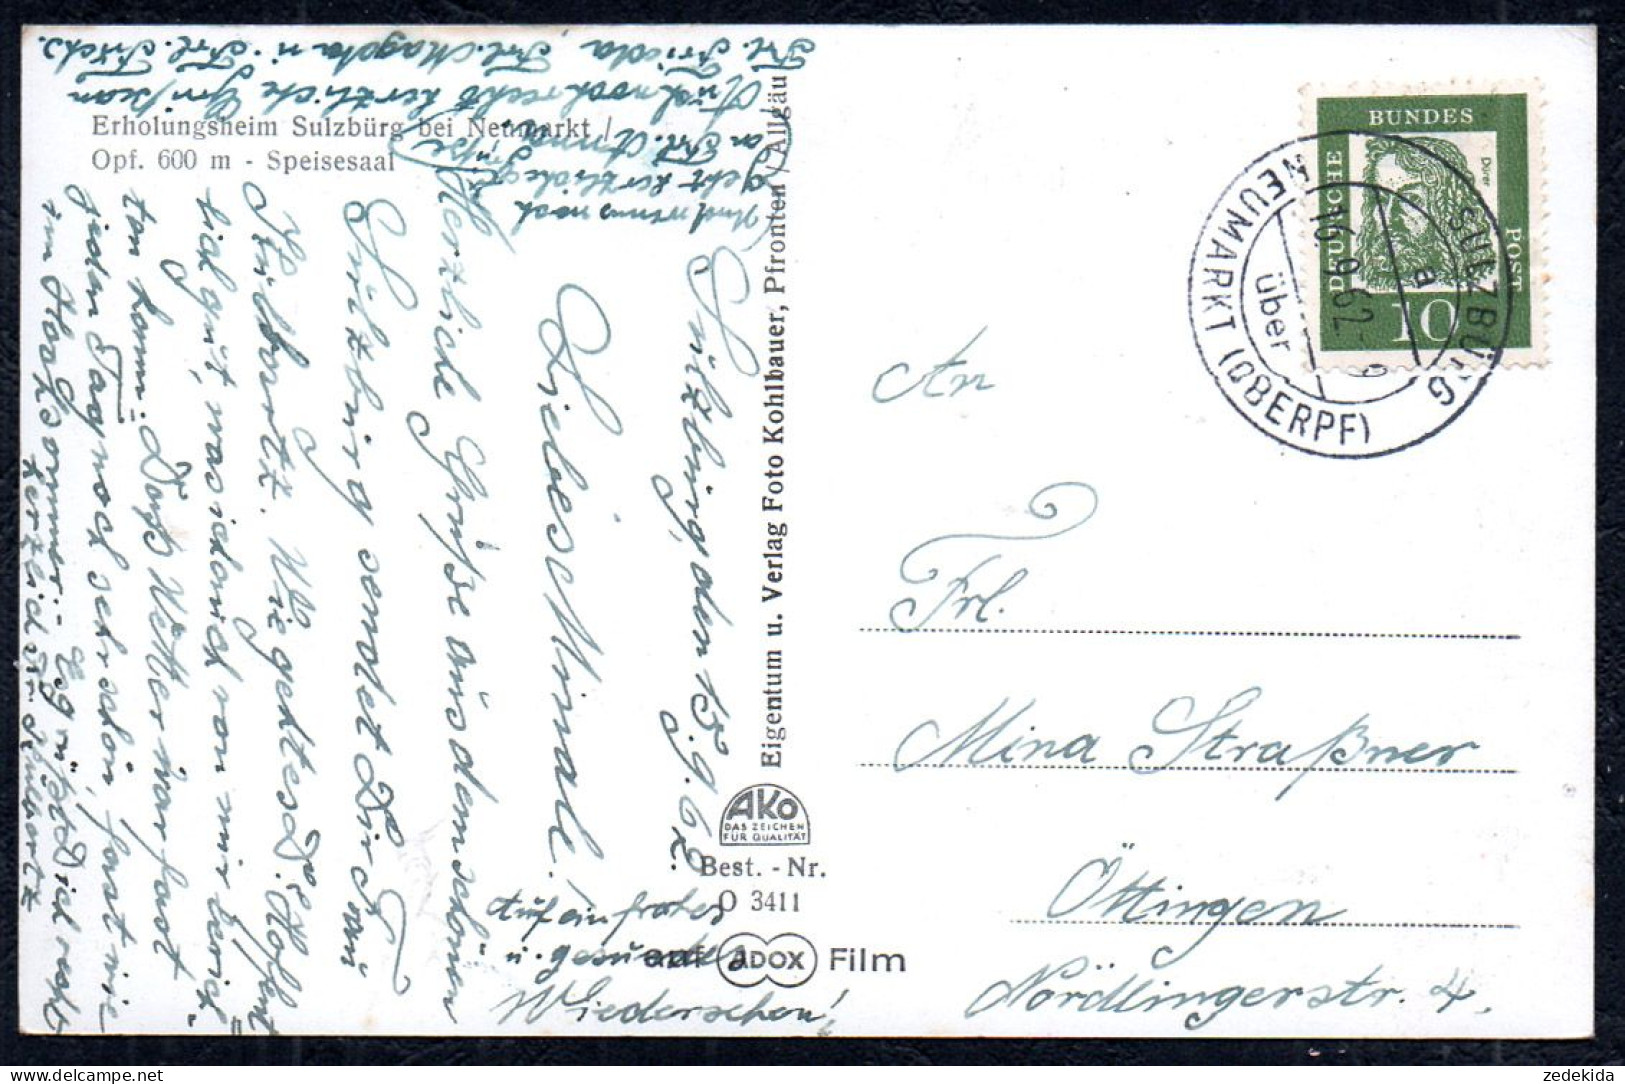 Erholungsheim Sulzbürg bei Neumarkt /
Opf. 600 m - Speisesaal
Sulzbürg, den 15.9.62.
Liebes Minale!
Herzliche Grüße aus dem schönen
Sulzbürg sendet Dir Frau
Stilbartz. Wie geht es Dir? Hoffent-
lich gut, was ich auch von mir berich-
ten kann. Das Wetter war fast
jeden Tag noch sehr schön, fast wie
im Hochsommer. Es grüßt Dich recht
herzlich
Auf ein frohes
u. gesundes
Wiedersehen!
Und nun noch
herzliche
Grüße
an Frl. Anna
Auch noch recht herzliche Grüße an
Frl. Frieda, Frl. Magda u. Frl. Fuchs.
Eigentum u. Verlag Foto Kohlbauer, Pfronten / Allgäu
AKO
DAS ZEICHEN
FÜR QUALITÄT
Best. - Nr.
O 3411
auf ADOX Film
DEUTSCHE
BUNDES
POST
Dürer
10
SULZBÜRG
a
16. 9. 62. - 9
über
NEUMARKT (OBERPF)
An
Frl.
Mina Straßner
Öttingen
Nördlingerstr. 4.
zedekida